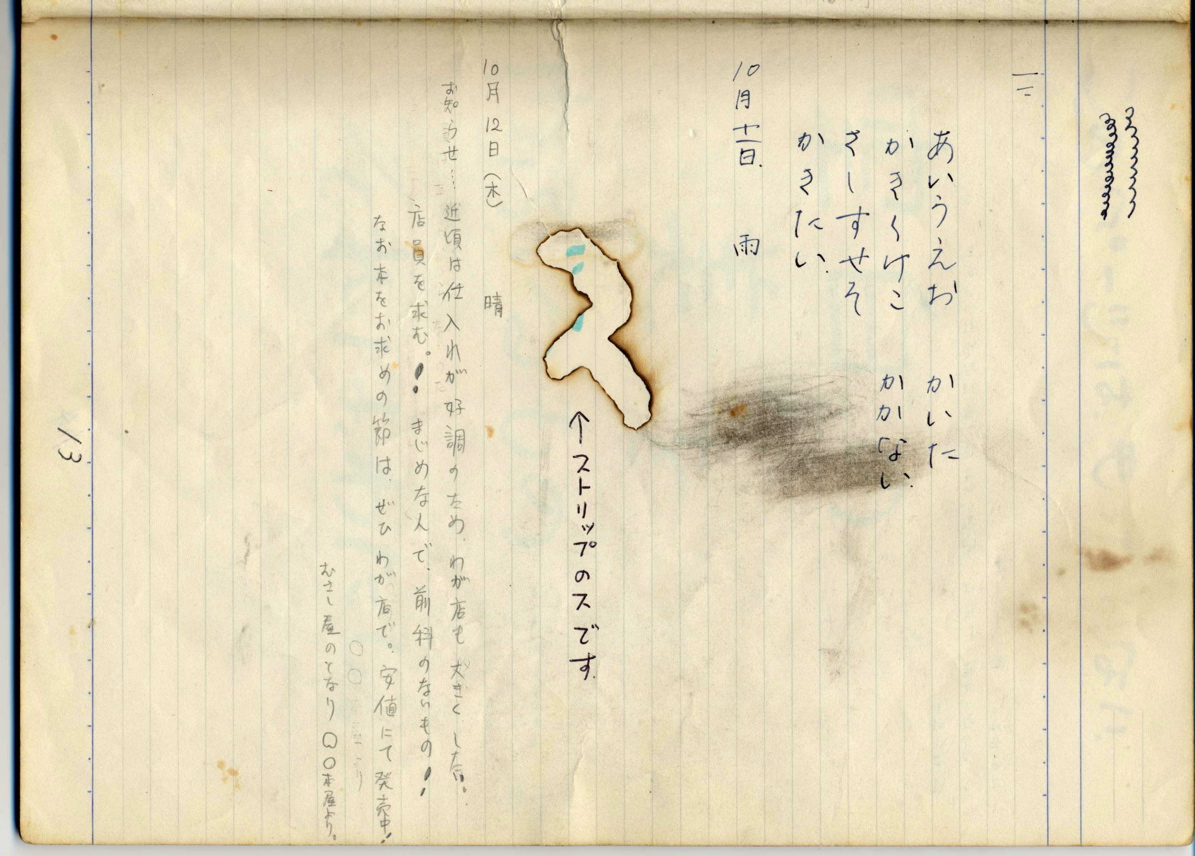 あいうえお　かいた
かきくけこ　かかない。
さしすせそ
かきたい。
10月十一日.　雨
↑ストリップのスです.
10月12日(木)　晴
お知らせ… 近頃は仕入れが好調のため、わが店も大きくした。
店員を求む。! まじめな人で、前科のないもの!
なお本をお求めの節は、ぜひわが店で。安値にて発売中!
むさし屋のとなり 〇〇本屋より。
13